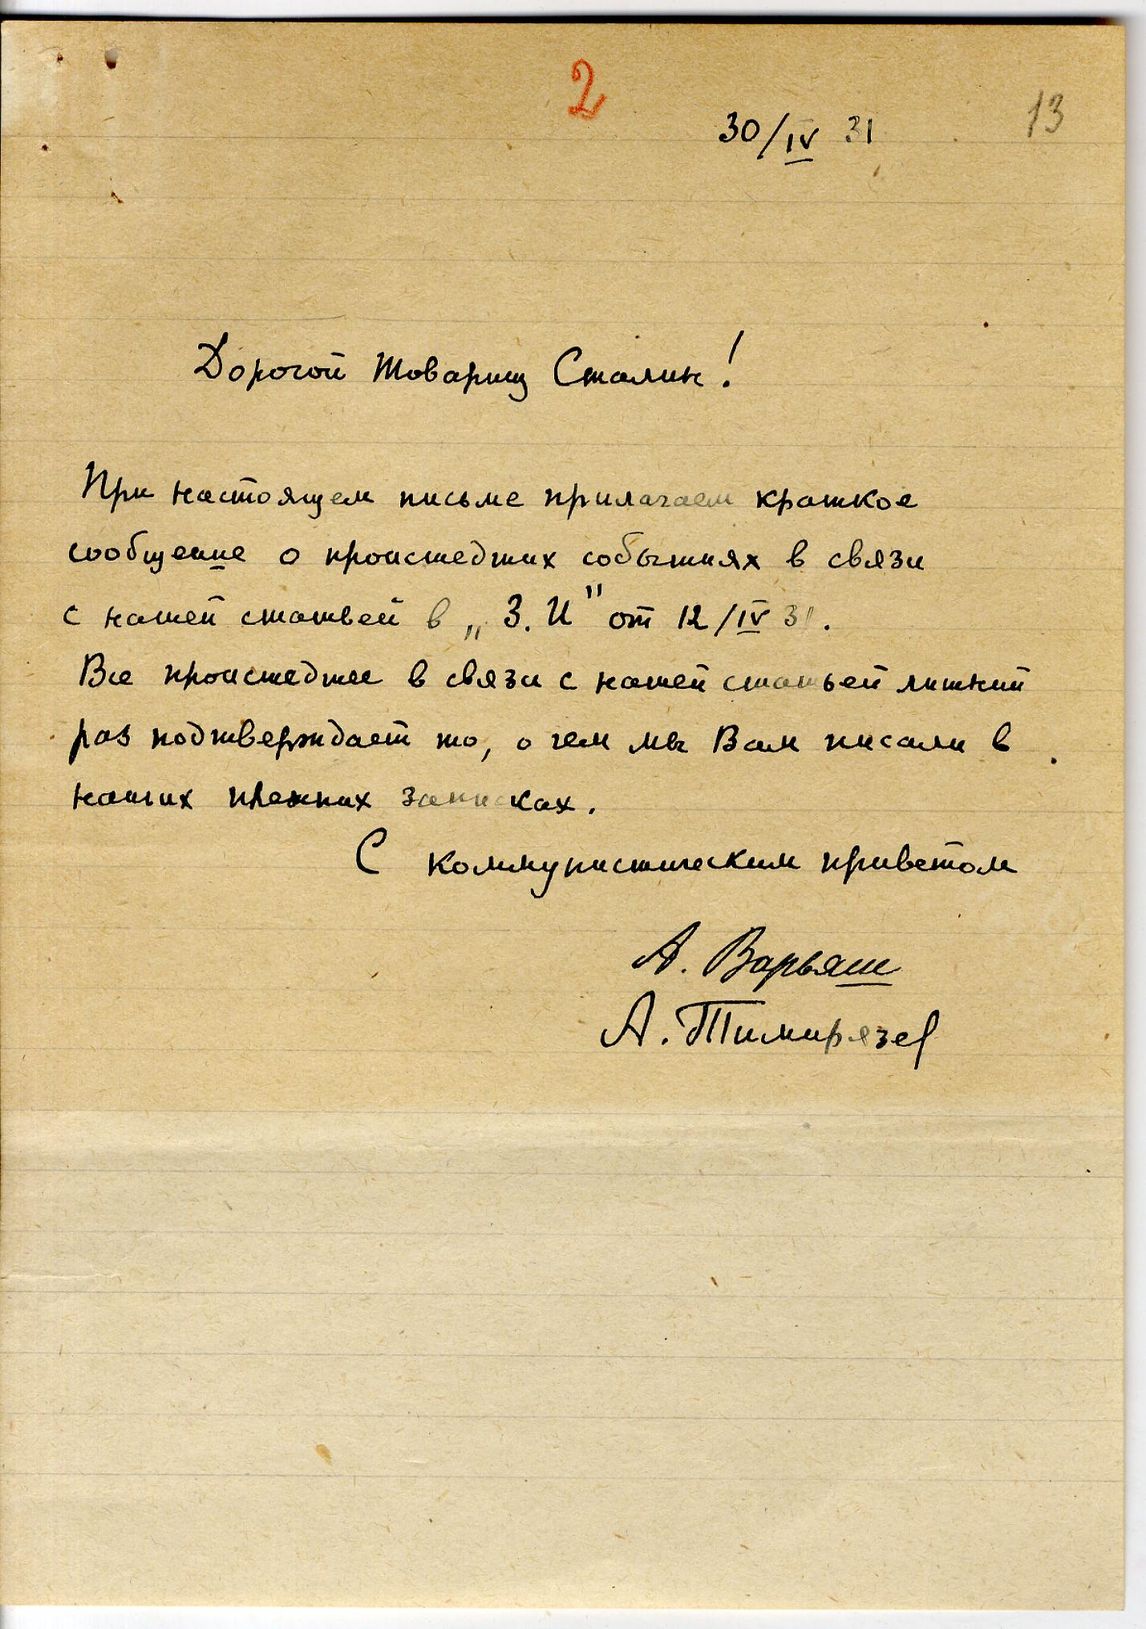 2
30/IV 31
13
Дорогой товарищ Сталин!
При настоящем письме прилагаем краткое
сообщение о происшедших событиях в связи
с нашей статьей в „З. И" от 12/IV 31.
Все происшедшее в связи с нашей статьей лишний
раз подтверждает то, о чем мы Вам писали в
наших прежних записках.
С коммунистическим приветом
А. Варьяш
А. Тимирязев